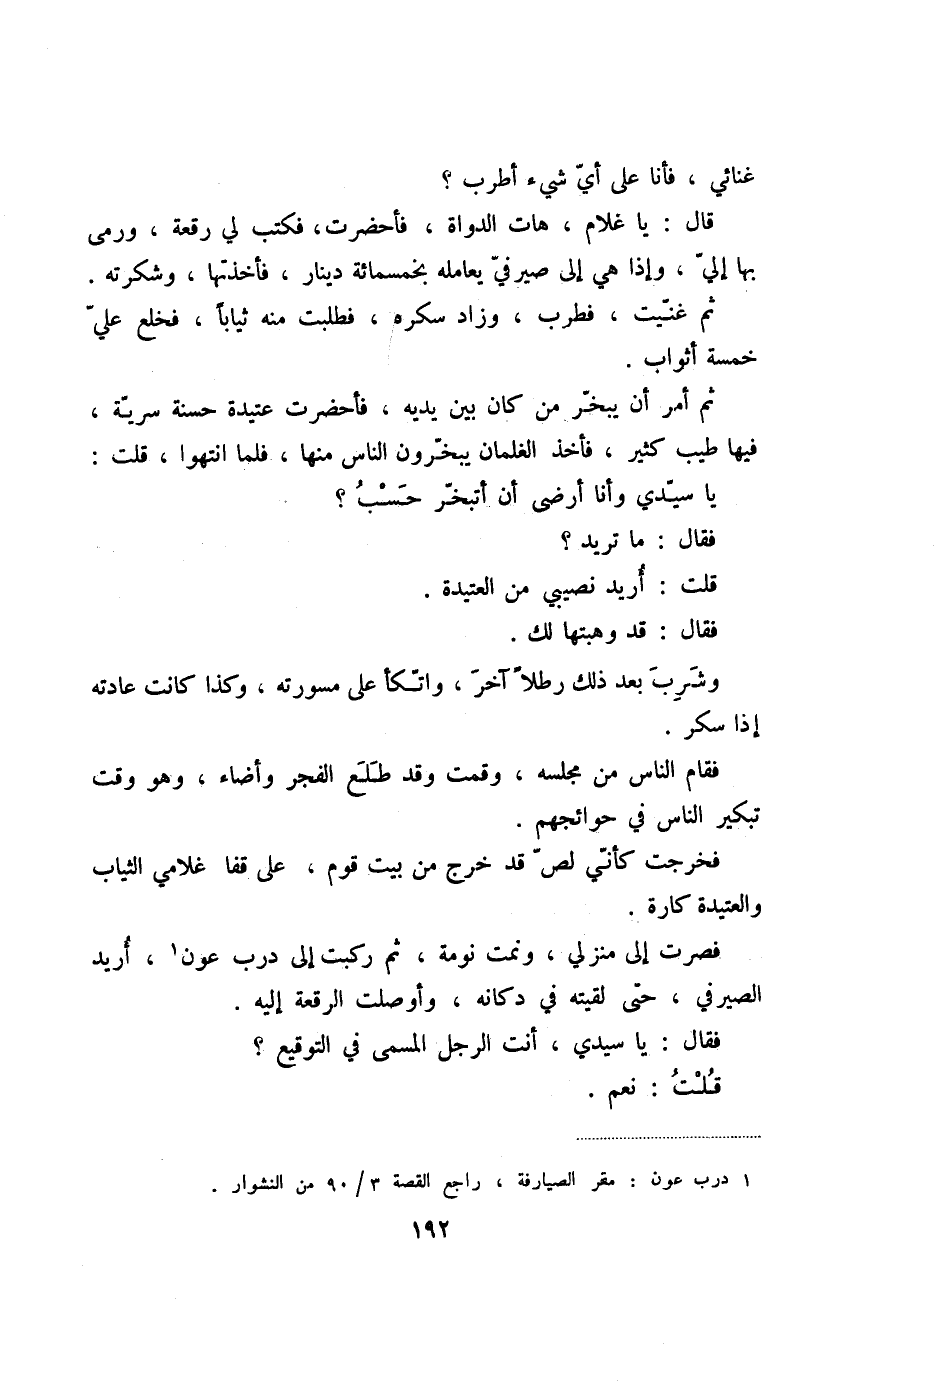 غنائي ، فأنا على أيّ شيء أطرب ؟
قال : يا غلام ، هات الدواة ، فأحضرت، فكتب لي رقعة ، ورمى
بها إليّ ، وإذا هي إلى صيرفيّ يعامله بخمسمائة دينار ، فأخذتها ، وشكرته .
ثم غنّيت ، فطرب ، وزاد سكره ، فطلبت منه ثياباً ، فخلع عليّ
خمسة أثواب .
ثم أمر أن يبخّر من كان بين يديه ، فأحضرت عتيدة حسنة سريّة ،
فيها طيب كثير ، فأخذ الغلمان يبخّرون الناس منها ، فلما انتهوا ، قلت :
يا سيّدي وأنا أرضى أن أتبخّر حَسْبُ ؟
فقال : ما تريد ؟
قلت : أُريد نصيبي من العتيدة .
فقال : قد وهبتها لك .
وشَرِبَ بعد ذلك رطلاً آخرَ ، واتّكأ على مسورته ، وكذا كانت عادته
إذا سكر .
فقام الناس من مجلسه ، وقمت وقد طَلَعَ الفجر وأضاء ، وهو وقت
تبكير الناس في حوائجهم .
فخرجت كأنّي لصّ قد خرج من بيت قوم ، على قفا غلامي الثياب
والعتيدة كارة .
فصرت إلى منزلي ، ونمت نومة ، ثم ركبت إلى درب عون١ ، أُريد
الصيرفي ، حتّى لقيته في دكانه ، وأوصلت الرقعة إليه .
فقال : يا سيدي ، أنت الرجل المسمى في التوقيع ؟
قُلْتُ : نعم .
١ درب عون : مقر الصيارفة ، راجع القصة ٣/ ٩٠ من النشوار .
١٩٢